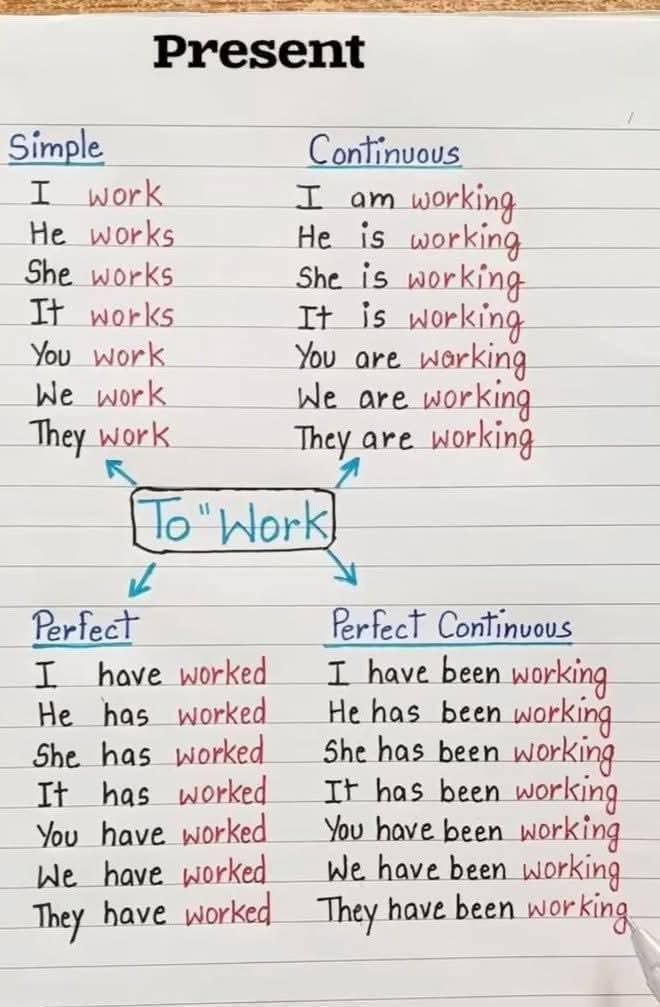 Present
Simple
I work
He works
She works
It works
You work
We work
They work
Continuous
I am working
He is working
She is working
It is working
You are working
We are working
They are working
To "Work
Perfect
I have worked
He has worked
She has worked
It has worked
You have worked
We have worked
They have worked
Perfect Continuous
I have been working
He has been working
She has been working
It has been working
You have been working
We have been working
They have been working